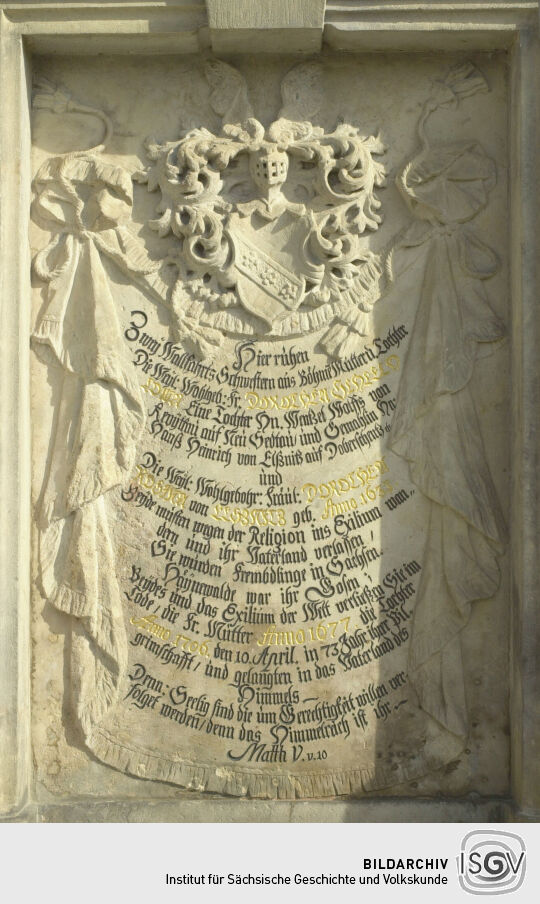 Hier ruhen
Zwey Wallfahrts-Schwestern aus Böhmen Mutter u. Tochter
Die Weil: Wohlgeb: Fr. DOROTHEA
Eine Tochter Hn. Wentzel Wolffs von
auf Neu und Gemahlin Hn:
Hanß Heinrich von Elßnitz auf
und
Die Weil: Wohlgebohr: Fräul: DOROTHEA
von ELSSNITZ geb. Anno
Beyde musten wegen der Religion ins Exilium wan-
dern und ihr Vaterland verlassen/
Sie wurden Frembdlinge in Sachsen.
Haynewalde war ihr Gosen/
Beydes und das Exilium der Welt verließen Sie im
Tode/ die Fr. Mutter Anno 1677. die Tochter
Anno 1706. den 10. April. in 73 Jahr ihrer Pil-
grimschafft/ und gelangten in das Vaterland des
Himmels
Denn: Seelig sind die um Gerechtigkeit willen ver-
folget werden/ denn das Himmelreich ist ihr.
Matth V. v. 10
BILDARCHIV
Institut für Sächsische Geschichte und Volkskunde
ISGV